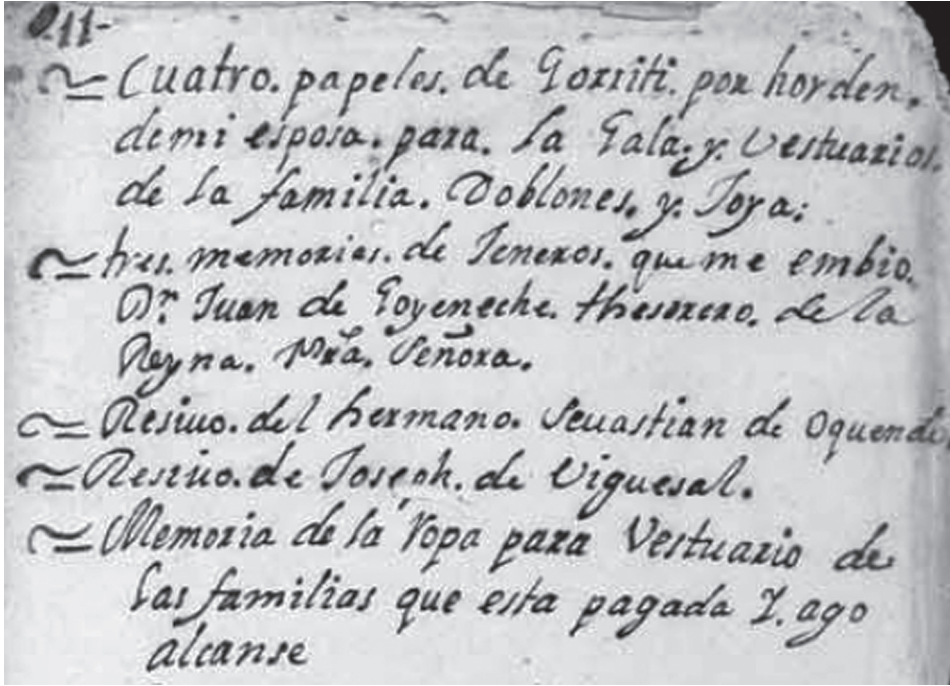 11-
Cuatro. papeles. de Gorriti. por horden.
demi esposa. para. la Gala. y. Vestuarios.
de la familia. Doblones. y. Joya:
tres. memorias. de Jeneros. que me embio.
Dn. Juan de Goyeneche. thesorero. de la
Reyna. Nrã. Señora.
Resiuo. del hermano. Seuastian de Oquendo
Resiuo. de Joseph. de Viguesal.
Memoria de la ropa para Vestuario de
las familias que esta pagada Y. ago
alcanse